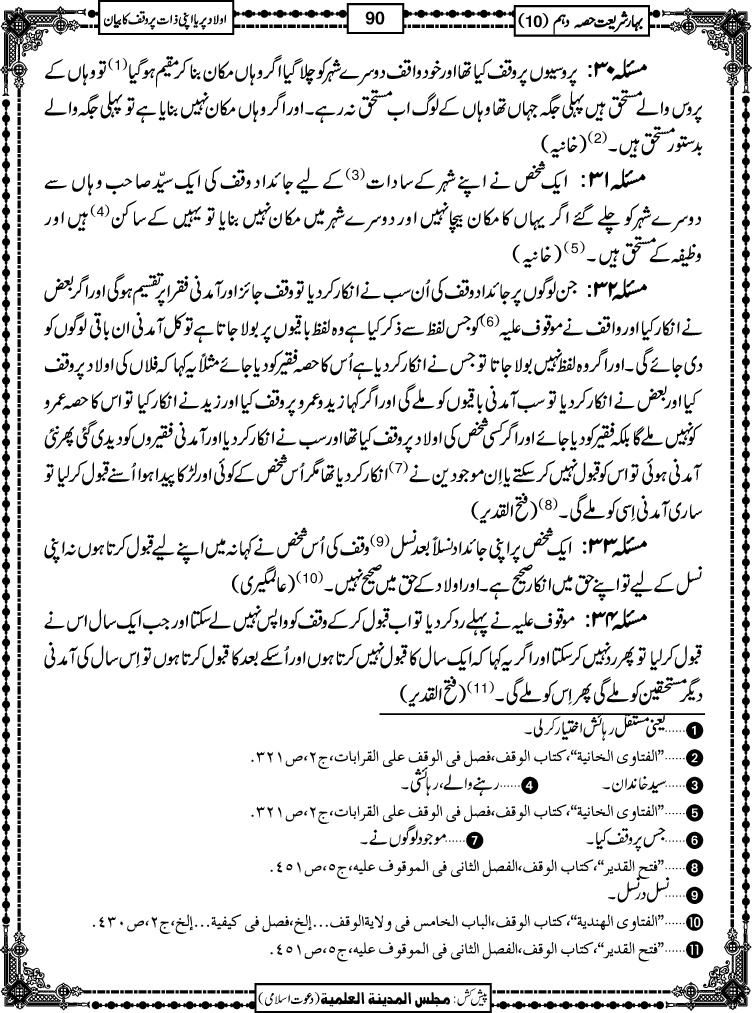 بہار شریعت حصہ دہم (10)
90
اولاد پر یا اپنی ذات پر وقف کا بیان
مسئلہ ۳۰: پروسیوں پر وقف کیا تھا اور خود واقف دوسرے شہر کو چلا گیا اگر وہاں مکان بنا کر مقیم ہوگیا(1) تو وہاں کے
پروس والے مستحق ہیں پہلی جگہ جہاں تھا وہاں کے لوگ اب مستحق نہ رہے۔ اور اگر وہاں مکان نہیں بنایا ہے تو پہلی جگہ والے
بدستور مستحق ہیں۔(2) (خانیہ)
مسئلہ ۳۱: ایک شخص نے اپنے شہر کے سادات(3) کے لیے جائداد وقف کی ایک سیّد صاحب وہاں سے
دوسرے شہر کو چلے گئے اگر یہاں کا مکان بیچا نہیں اور دوسرے شہر میں مکان نہیں بنایا تو یہیں کے ساکن(4) ہیں اور
وظیفہ کے مستحق ہیں۔(5) (خانیہ)
مسئلہ ۳۲: جن لوگوں پر جائداد وقف کی اُن سب نے انکار کردیا تو وقف جائز اور آمدنی فقرا پر تقسیم ہوگی اور اگر بعض
نے انکار کیا اور واقف نے موقوف علیہ(6) کو جس لفظ سے ذکر کیا ہے وہ لفظ باقیوں پر بولا جاتا ہے تو کل آمدنی ان باقی لوگوں کو
دی جائے گی۔ اور اگر وہ لفظ نہیں بولا جاتا تو جس نے انکار کردیا ہے اُس کا حصہ فقیر کو دیا جائے مثلاً یہ کہا کہ فلاں کی اولاد پر وقف
کیا اور بعض نے انکار کردیا تو سب آمدنی باقیوں کو ملے گی اور اگر کہا زید وعمرو پر وقف کیا اور زید نے انکار کیا تو اس کا حصہ عمرو
کو نہیں ملے گا بلکہ فقیر کو دیا جائے اور اگر کسی شخص کی اولاد پر وقف کیا تھا اور سب نے انکار کردیا اور آمدنی فقیروں کو دیدی گئی پھر نئی
آمدنی ہوئی تو اس کو قبول نہیں کرسکتے یا اِن موجودین نے(7) انکار کردیا تھا مگر اُس شخص کے کوئی اور لڑکا پیدا ہوا اُسنے قبول کرلیا تو
ساری آمدنی اِسی کو ملے گی۔(8) (فتح القدیر)
مسئلہ ۳۳: ایک شخص پر اپنی جائداد نسلاً بعد نسل(9) وقف کی اُس شخص نے کہا نہ میں اپنے لیے قبول کرتا ہوں نہ اپنی
نسل کے لیے تو اپنے حق میں انکار صحیح ہے۔ اور اولاد کے حق میں صحیح نہیں۔(10) (عالمگیری)
مسئلہ ۳۴: موقوف علیہ نے پہلے رد کردیا تو اب قبول کرکے وقف کو واپس نہیں لے سکتا اور جب ایک سال اس نے
قبول کرلیا تو پھر رد نہیں کرسکتا اور اگر یہ کہا کہ ایک سال کا قبول نہیں کرتا ہوں اور اُسکے بعد کا قبول کرتا ہوں تو اِس سال کی آمدنی
دیگر مستحقین کو ملے گی پھر اِس کو ملے گی۔(11) (فتح القدیر)
1 ......یعنی مستقل رہائش اختیار کرلی۔
2 ......”الفتاوی الخانیة“، کتاب الوقف، فصل فی الوقف علی القرابات، ج۲، ص ۳۲۱.
3 ......سید خاندان۔ 4 ......رہنے والے، رہائشی۔
5 ......”الفتاوی الخانیة“، کتاب الوقف، فصل فی الوقف علی القرابات، ج۲، ص ۳۲۱.
6 ......جس پر وقف کیا۔ 7 ......موجود لوگوں نے۔
8 ......”فتح القدیر“، کتاب الوقف، الفصل الثانی فی الموقوف علیه، ج٥، ص ٤٥١.
9 ......نسل در نسل۔
10 ......”الفتاوی الهندیة“، کتاب الوقف، الباب الخامس فی ولایة الوقف...إلخ، فصل فی کیفیة...إلخ، ج۲، ص ٤٣٠.
11 ......”فتح القدیر“، کتاب الوقف، الفصل الثانی فی الموقوف علیه، ج٥، ص ٤٥١.
پیش کش: مجلس المدینة العلمیة (دعوت اسلامی)